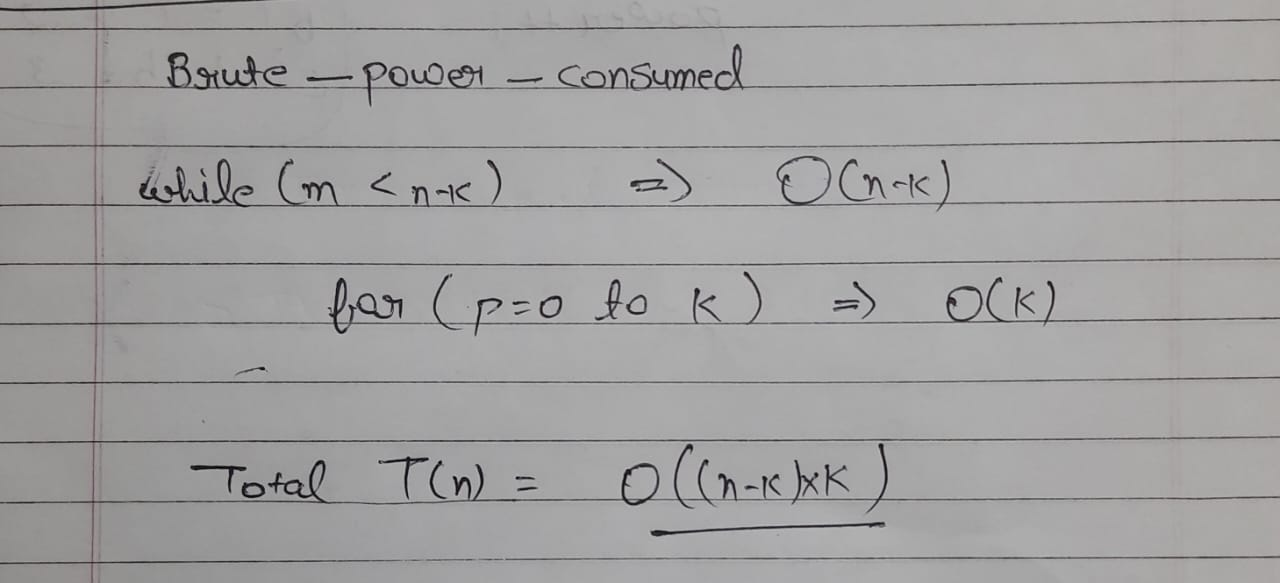 Brute – power – consumed
while (m < n-k) => O(n-k)
for (p=0 to k) => O(k)
Total T(n) = O((n-k)×k)